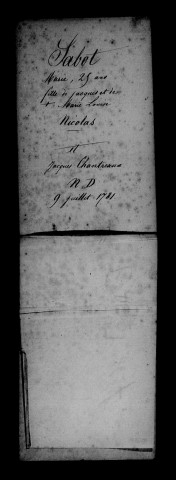 Sabot
Marie, 25 ans
fille à Jacques et de
+ Marie Louise
Nicolas
et
Jacques Chantreau
R D
9 juillet 1781